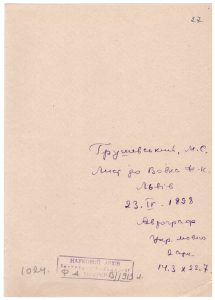 27
Грушевський, М.С.
Лист до Вовка Ф.К.
Львів
23.IV.1898
Автограф
Укр. мовою
2 арк.
14.3 x 22.7
1024.
НАУКОВИЙ АРХІВ